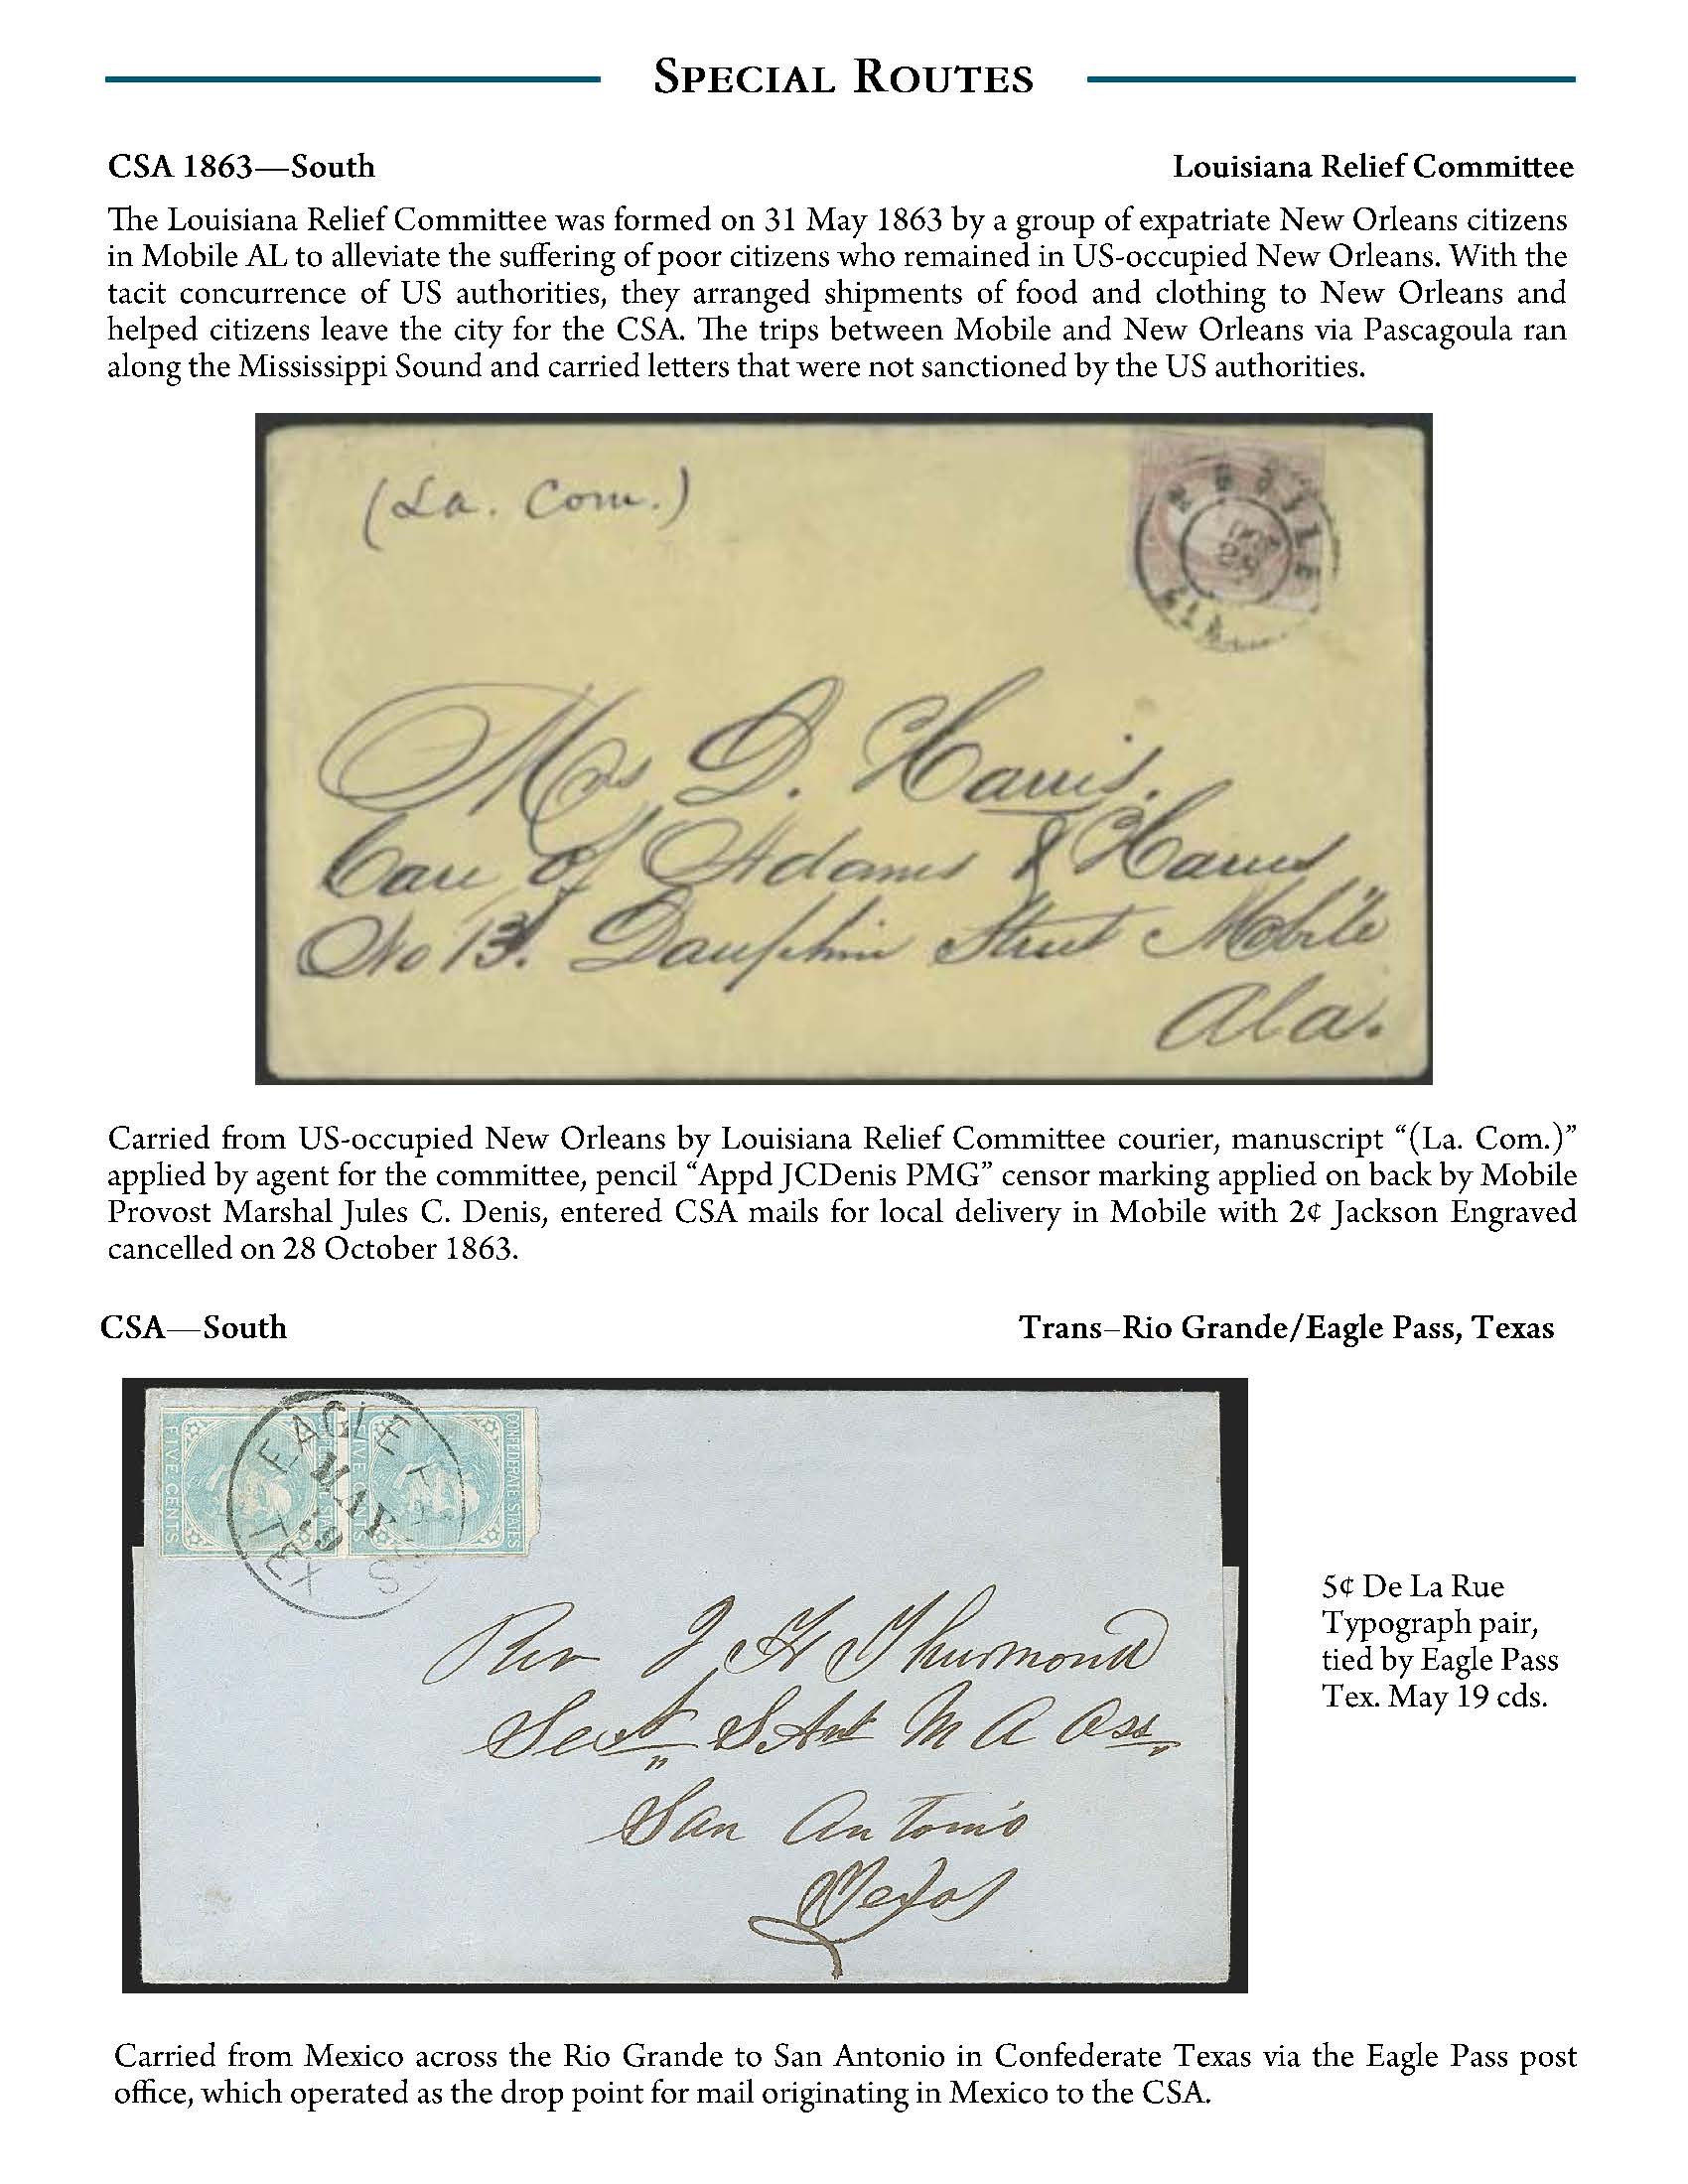 SPECIAL ROUTES
CSA 1863—South
Louisiana Relief Committee
The Louisiana Relief Committee was formed on 31 May 1863 by a group of expatriate New Orleans citizens
in Mobile AL to alleviate the suffering of poor citizens who remained in US-occupied New Orleans. With the
tacit concurrence of US authorities, they arranged shipments of food and clothing to New Orleans and
helped citizens leave the city for the CSA. The trips between Mobile and New Orleans via Pascagoula ran
along the Mississippi Sound and carried letters that were not sanctioned by the US authorities.
(La. Com.)
MOBILE
ALA
Mrs D. Harris.
Care of Adams & Harris
No 13. Dauphin Street Mobile
Ala.
Carried from US-occupied New Orleans by Louisiana Relief Committee courier, manuscript “(La. Com.)”
applied by agent for the committee, pencil “Appd JCDenis PMG” censor marking applied on back by Mobile
Provost Marshal Jules C. Denis, entered CSA mails for local delivery in Mobile with 2¢ Jackson Engraved
cancelled on 28 October 1863.
CSA—South
Trans–Rio Grande/Eagle Pass, Texas
FIVE CENTS
CONFEDERATE STATES
EAGLE PASS
MAY
19
TEX
Rev J H Thurmond
Sect S Ant M A Ass
San Antonio
Texas
5¢ De La Rue
Typograph pair,
tied by Eagle Pass
Tex. May 19 cds.
Carried from Mexico across the Rio Grande to San Antonio in Confederate Texas via the Eagle Pass post
office, which operated as the drop point for mail originating in Mexico to the CSA.